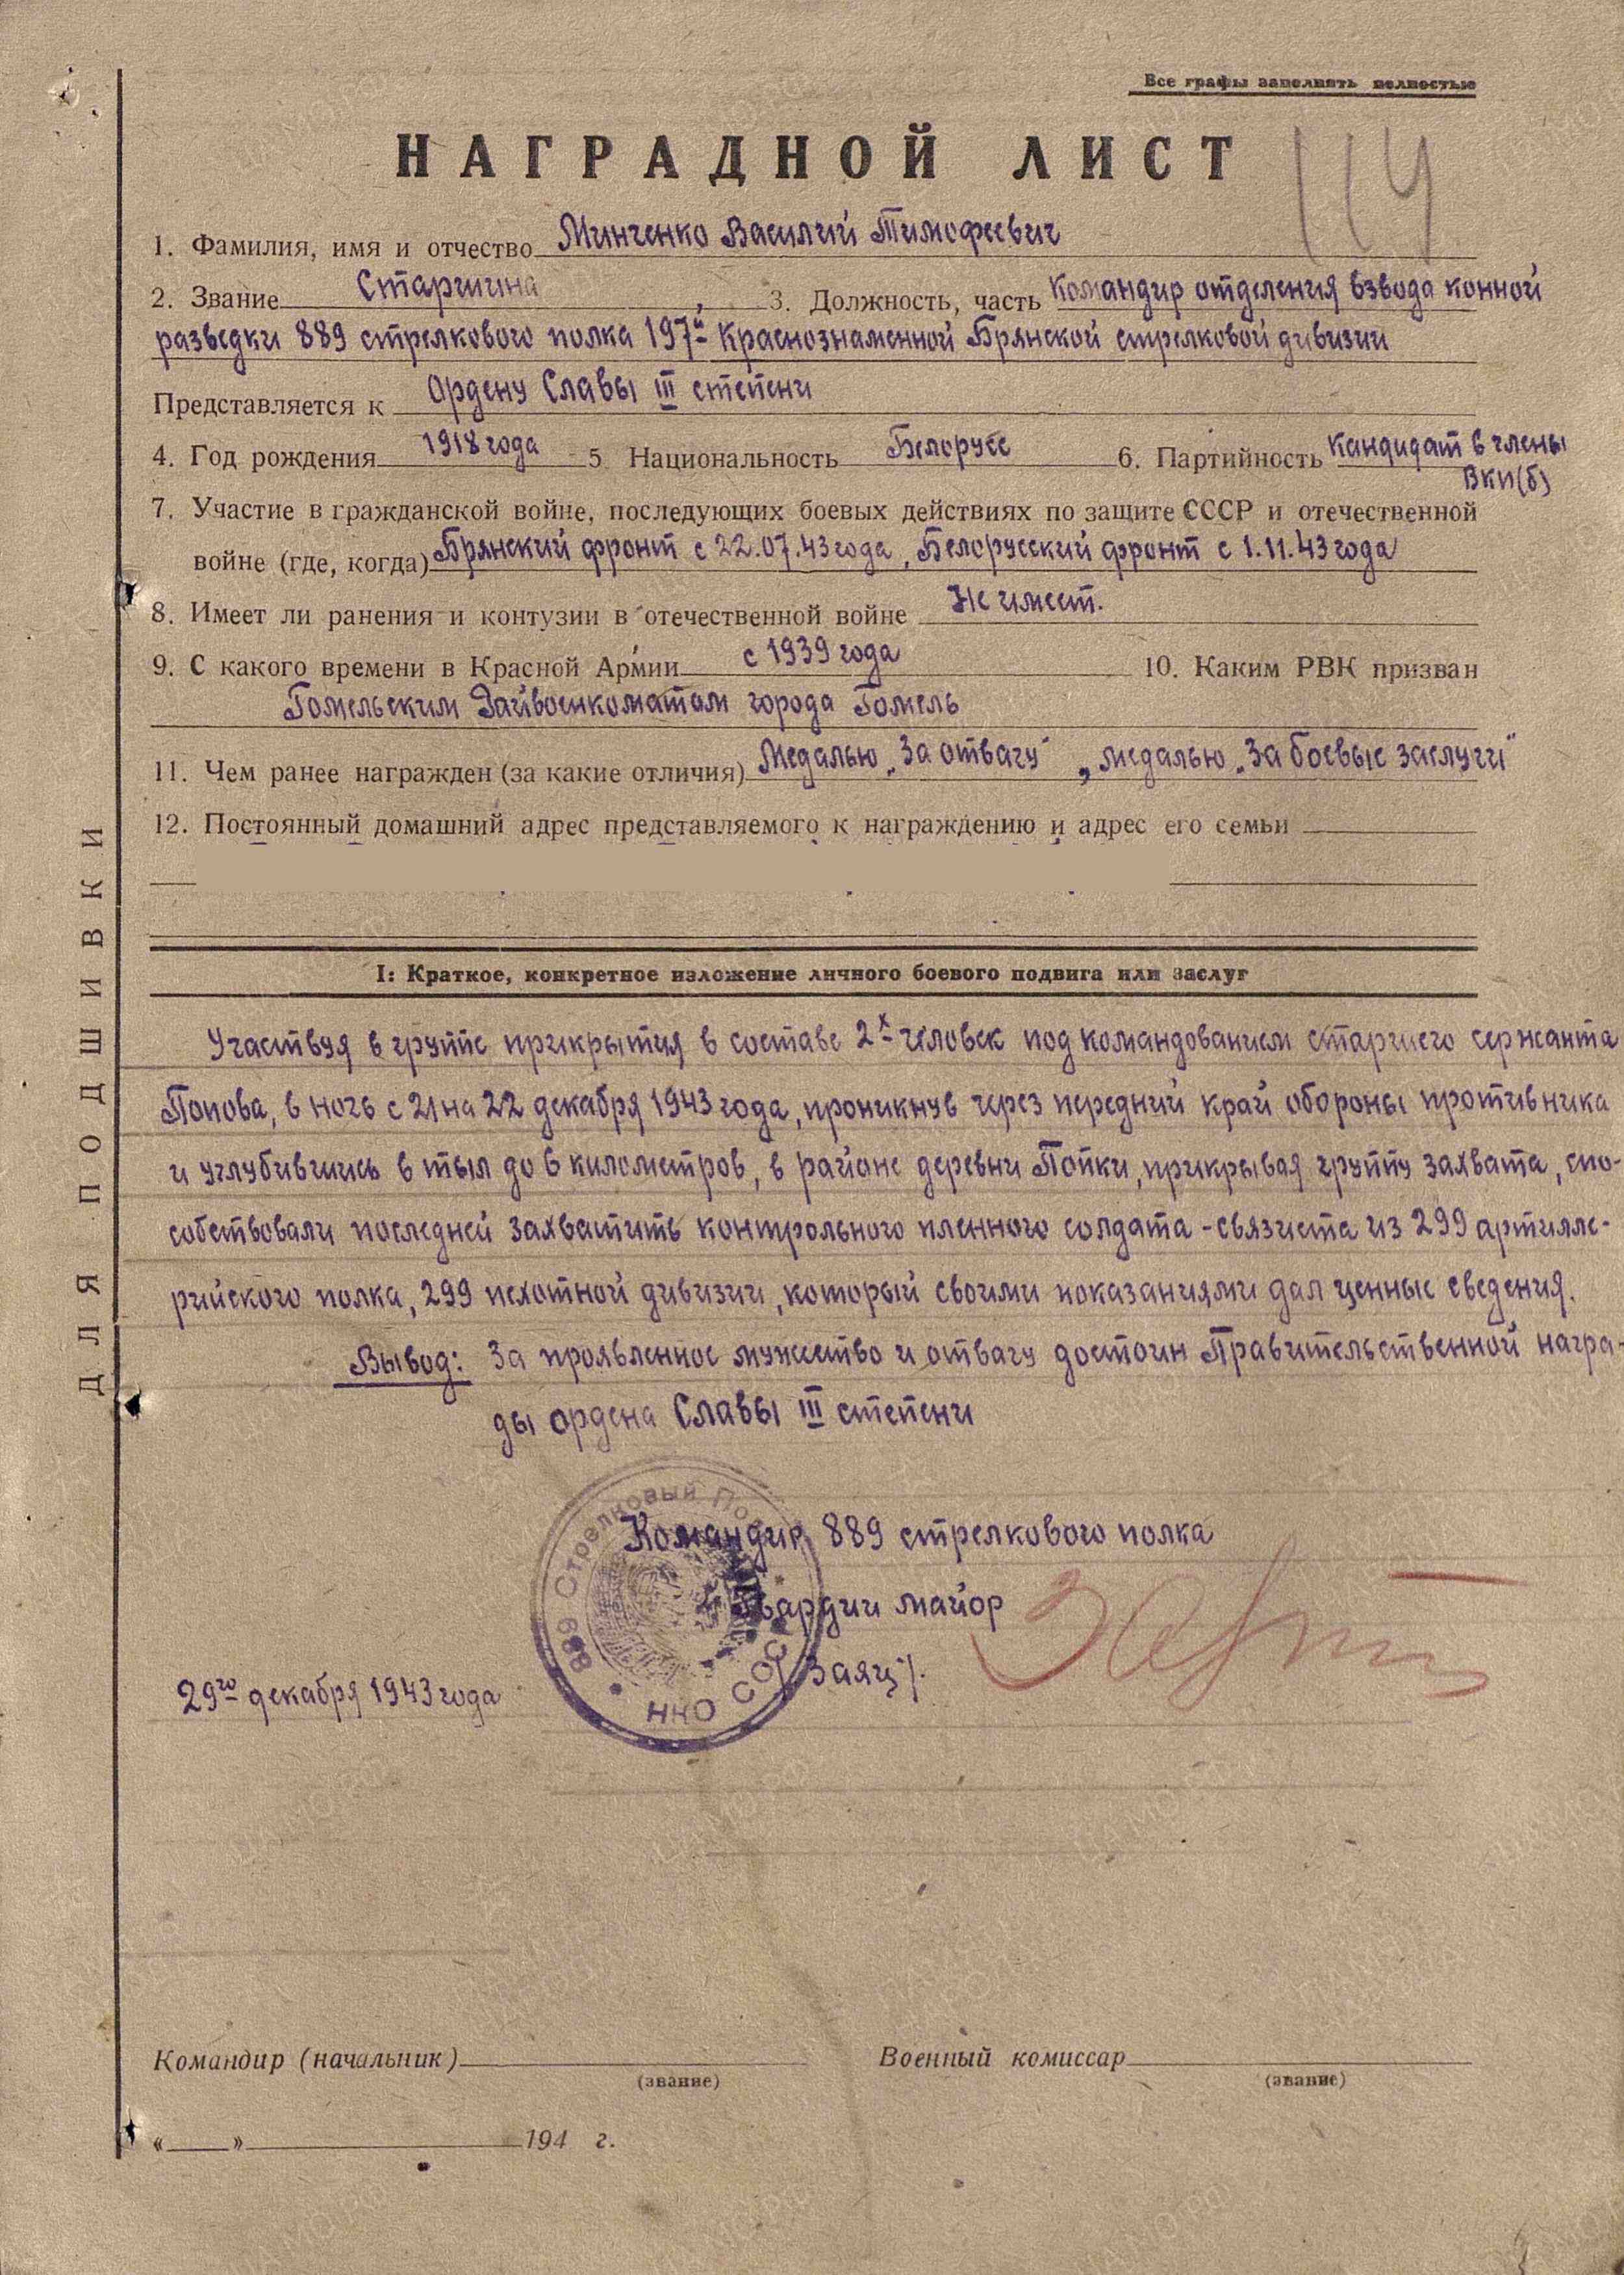 Все графы заполнять полностью
НАГРАДНОЙ ЛИСТ
114
1. Фамилия, имя и отчество Минченко Василий Тимофеевич
2. Звание Старшина, 3. Должность, часть Командир отделения взвода конной
разведки 889 стрелкового полка 197й Краснознаменной Брянской стрелковой дивизии
Представляется к Ордену Славы III степени
4. Год рождения 1918 года 5 Национальность Белорусс 6. Партийность Кандидат в члены
ВКП(б)
7. Участие в гражданской войне, последующих боевых действиях по защите СССР и отечественной
войне (где, когда) Брянский фронт с 22.07.43 года, Белорусский фронт с 1.11.43 года
8. Имеет ли ранения и контузии в отечественной войне Не имеет.
9. С какого времени в Красной Армии с 1939 года 10. Каким РВК призван
Гомельским Райвоенкоматом города Гомель
11. Чем ранее награжден (за какие отличия) Медалью „За отвагу", медалью „За боевые заслуги"
12. Постоянный домашний адрес представляемого к награждению и адрес его семьи
I: Краткое, конкретное изложение личного боевого подвига или заслуг
Участвуя в группе прикрытия в составе 2х человек под командованием старшего сержанта
Попова, в ночь с 21 на 22 декабря 1943 года, проникнув через передний край обороны противника
и углубившись в тыл до 6 километров, в районе деревни Попки, прикрывая группу захвата, спо-
собствовали последней захватить контрольного пленного солдата - связиста из 299 артилле-
рийского полка, 299 пехотной дивизии, который своими показаниями дал ценные сведения.
Вывод: За проявленное мужество и отвагу достоин Правительственной награ-
ды ордена Славы III степени
Командир 889 стрелкового полка
Гвардии майор
/Заяц/.
29го декабря 1943 года
889 Стрелковый Полк
НКО СССР
ДЛЯ ПОДШИВКИ
Командир (начальник) Военный комиссар
(звание) (звание)
« » 194 г.